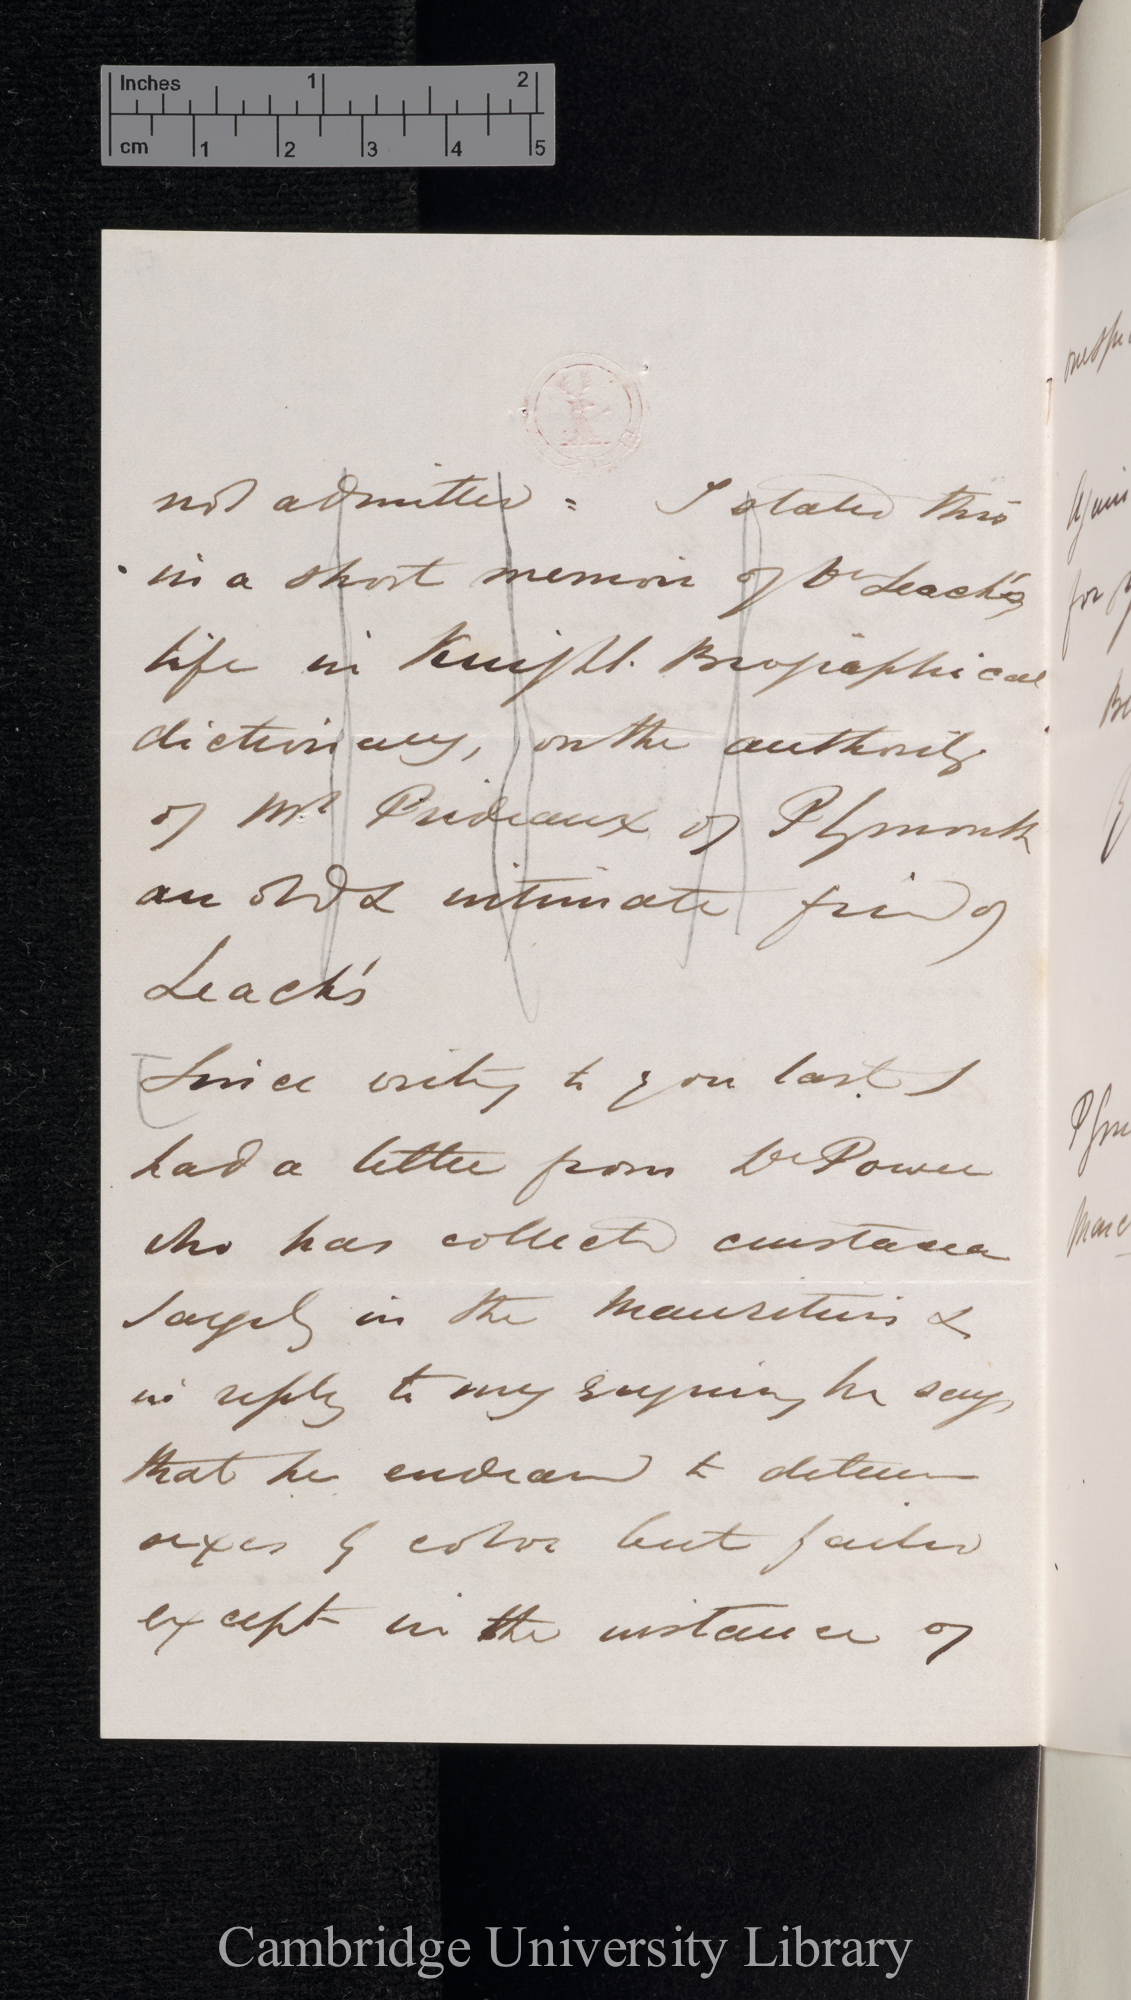 Inches 1 2
cm 1 2 3 4 5
not admitted = I stated this
in a short memoir of Dr Leach's
life in Knight. Biographical
dictionary, on the authority
of Mr Prideaux of Plymouth
an old & intimate friend of
Leach's
Since writing to you last I
had a letter from Dr Power
who has collected crustacea
largely in the Mauritius &
in reply to my enquiry he says
that he endeavored to determine
sexes by color but failed
except in the instance of
Again
for
Cambridge University Library